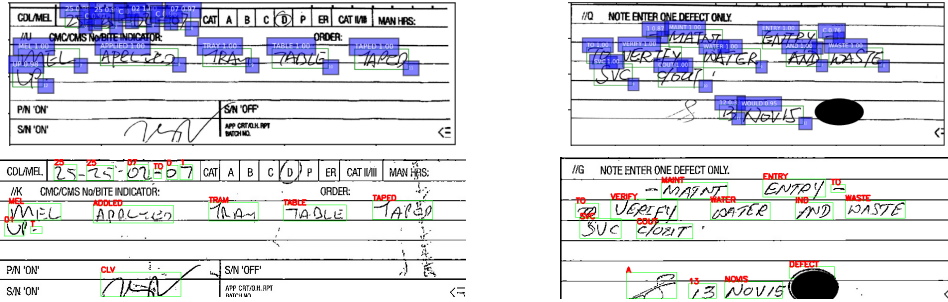 CDL/MEL CAT A B C D P ER CAT II/III MAN HRS:
//U CMC/CMS No/BITE INDICATOR: ORDER:
MEL 1.00 APPLIED 1.00 TRAY 1.00 TABLE 1.00 TAPED 1.00
MEL APPLIED TRAY TABLE TAPED
UP 0.98
UP
P/N 'ON' S/N 'OFF'
S/N 'ON' APP CRT/O.H. RPT
BATCH NO.
//Q NOTE ENTER ONE DEFECT ONLY.
MAINT ENTRY
TO VERIFY WATER AND WASTE
SVC C/OUT
WOULD 0.95
13 NOV15
25 25 07 TO
CDL/MEL 25-25-02-07 CAT A B C D P ER CAT II/III MAN HRS:
//K CMC/CMS No/BITE INDICATOR: ORDER:
MEL ADDLED TRAM TABLE TAPED
MEL APPLIED TRAY TABLE TAPED
UP
P/N 'ON' CLV S/N 'OFF'
S/N 'ON' APP CRT/O.H. RPT
BATCH NO.
//G NOTE ENTER ONE DEFECT ONLY.
MAINT ENTRY TO
- MAINT ENTRY -
TO VERIFY WATER IND WASTE
TO VERIFY WATER AND WASTE
SVC COUT
SVC C/OUT
A 13 NOVIS DEFECT
13 NOV15